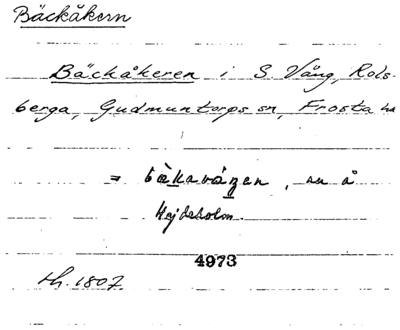 Bäckåkern
Bäckåkeren i S. Vång, Rols-
berga, Gudmuntorps sn, Frosta hd
= bäkavåŋen, nu å
Hejdeholm.
4973
Lh. 1807